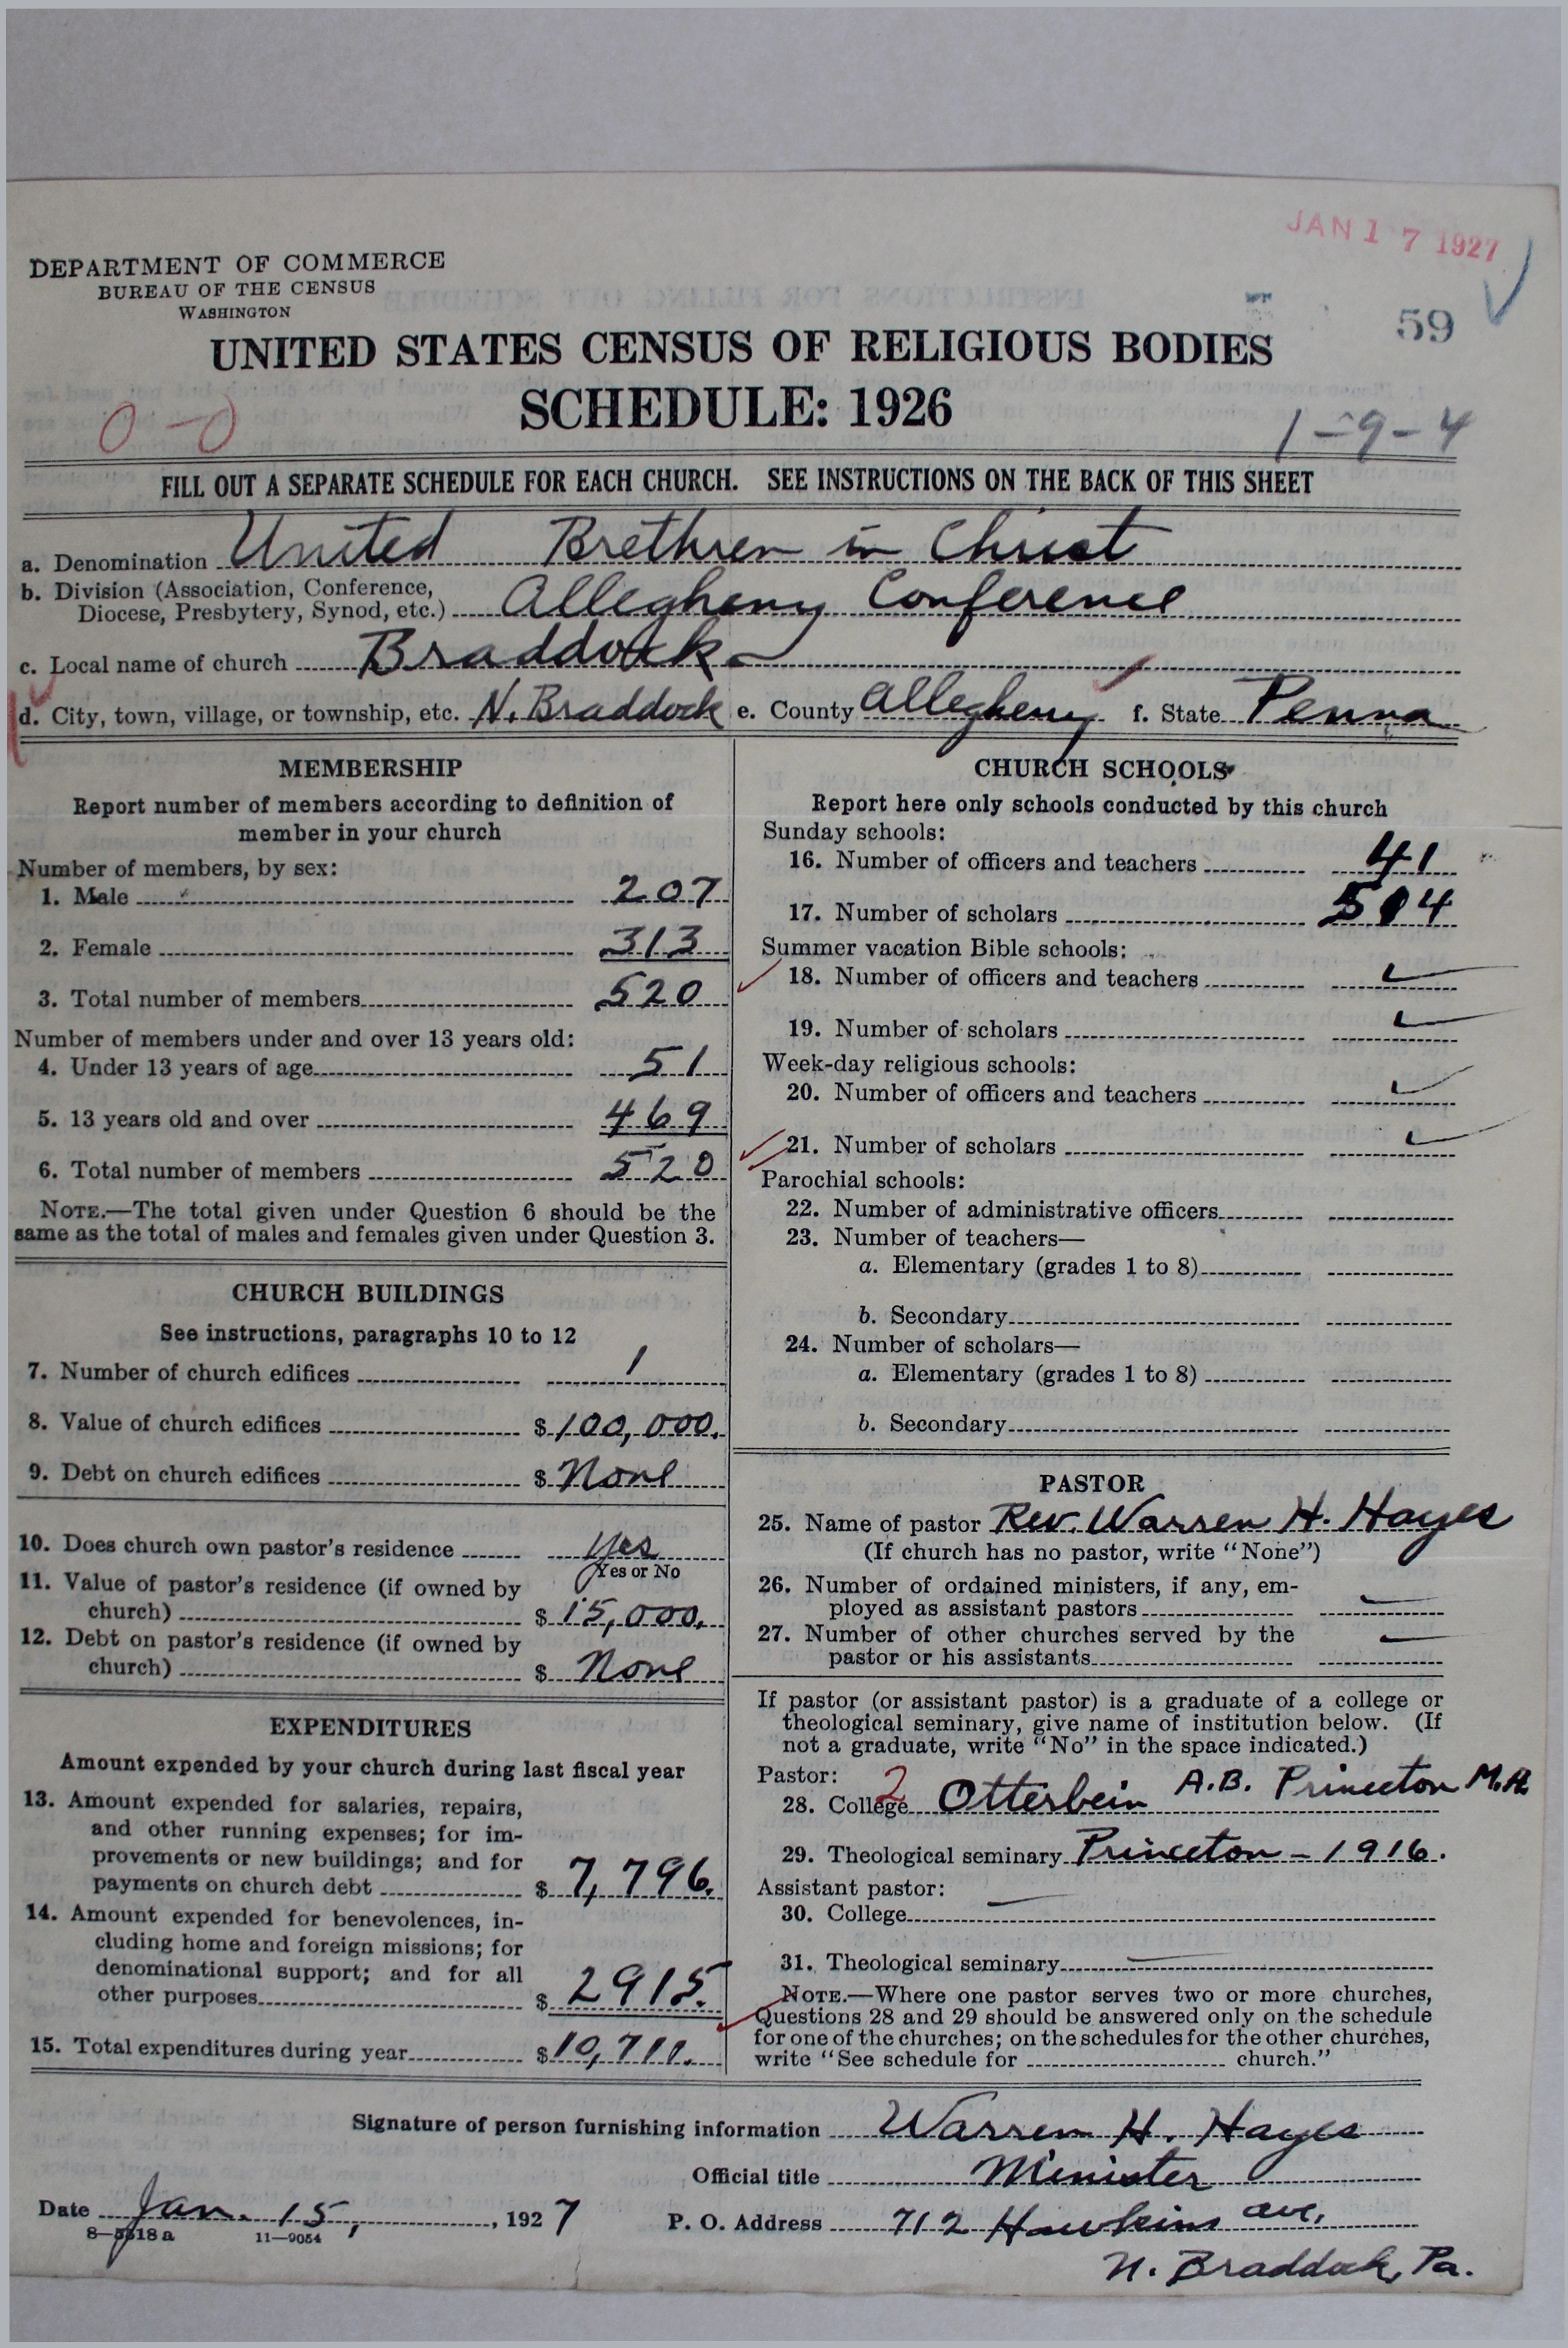 JAN 17 1927
DEPARTMENT OF COMMERCE
BUREAU OF THE CENSUS
WASHINGTON
59
UNITED STATES CENSUS OF RELIGIOUS BODIES
SCHEDULE: 1926
0-0
1-9-4
FILL OUT A SEPARATE SCHEDULE FOR EACH CHURCH. SEE INSTRUCTIONS ON THE BACK OF THIS SHEET
a. Denomination United Brethren in Christ
b. Division (Association, Conference,
Diocese, Presbytery, Synod, etc.) Allegheny Conference
c. Local name of church Braddock
d. City, town, village, or township, etc. N. Braddock e. County Allegheny f. State Penna
MEMBERSHIP
Report number of members according to definition of
member in your church
Number of members, by sex:
1. Male 207
2. Female 313
3. Total number of members 520
Number of members under and over 13 years old:
4. Under 13 years of age 51
5. 13 years old and over 469
6. Total number of members 520
NOTE.—The total given under Question 6 should be the
same as the total of males and females given under Question 3.
CHURCH BUILDINGS
See instructions, paragraphs 10 to 12
7. Number of church edifices 1
8. Value of church edifices $ 100,000.
9. Debt on church edifices $ None
10. Does church own pastor's residence Yes
Yes or No
11. Value of pastor's residence (if owned by
church) $ 15,000.
12. Debt on pastor's residence (if owned by
church) $ None
EXPENDITURES
Amount expended by your church during last fiscal year
13. Amount expended for salaries, repairs,
and other running expenses; for im-
provements or new buildings; and for
payments on church debt $ 7,796.
14. Amount expended for benevolences, in-
cluding home and foreign missions; for
denominational support; and for all
other purposes $ 2915.
15. Total expenditures during year $ 10,711.
CHURCH SCHOOLS
Report here only schools conducted by this church
Sunday schools:
16. Number of officers and teachers 41
17. Number of scholars 514
Summer vacation Bible schools:
18. Number of officers and teachers
19. Number of scholars
Week-day religious schools:
20. Number of officers and teachers
21. Number of scholars
Parochial schools:
22. Number of administrative officers
23. Number of teachers—
a. Elementary (grades 1 to 8)
b. Secondary
24. Number of scholars—
a. Elementary (grades 1 to 8)
b. Secondary
PASTOR
25. Name of pastor Rev. Warren H. Hayes
(If church has no pastor, write "None")
26. Number of ordained ministers, if any, em-
ployed as assistant pastors —
27. Number of other churches served by the
pastor or his assistants —
If pastor (or assistant pastor) is a graduate of a college or
theological seminary, give name of institution below. (If
not a graduate, write "No" in the space indicated.)
Pastor:
28. College 2 Otterbein A.B. Princeton M.A.
29. Theological seminary Princeton - 1916.
Assistant pastor:
30. College —
31. Theological seminary —
NOTE.—Where one pastor serves two or more churches,
Questions 28 and 29 should be answered only on the schedule
for one of the churches; on the schedules for the other churches,
write "See schedule for church."
Signature of person furnishing information Warren H. Hayes
Official title Minister
Date Jan. 15, , 1927
P. O. Address 712 Hawkins ave,
N. Braddock, Pa.
8—5518 a 11—9054